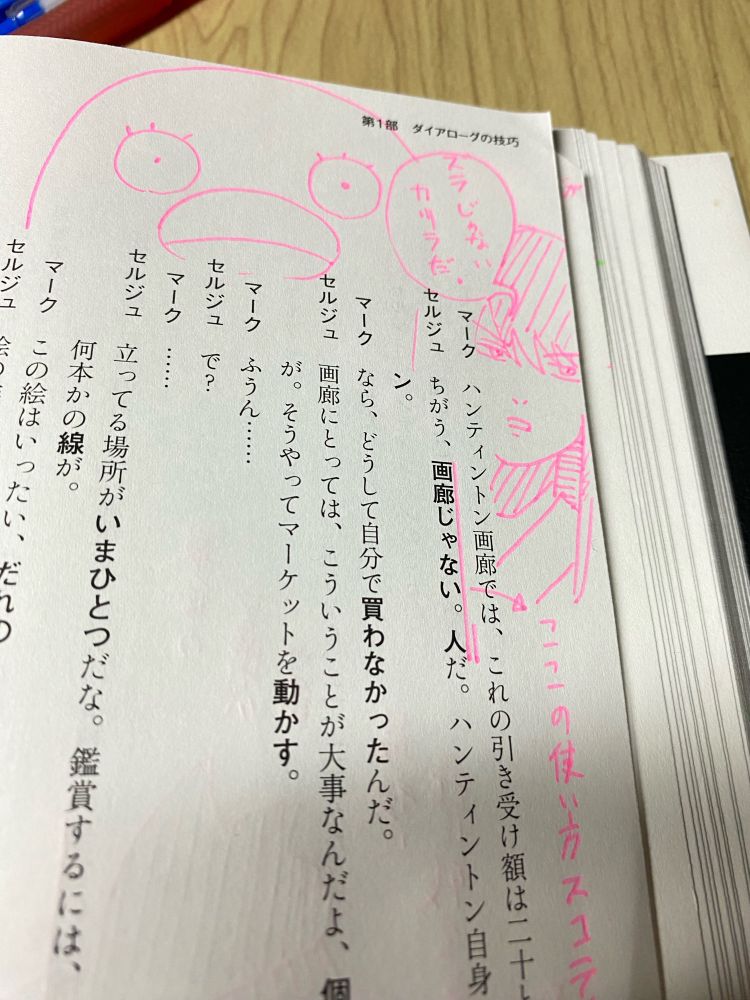 第1部 ダイアローグの技巧
ズラじゃない
カツラだ。
ここの使い方スコ
マーク ハンティントン画廊では、これの引き受け額は二十
セルジュ ちがう、画廊じゃない。人だ。ハンティントン自身
ン。
マーク なら、どうして自分で買わなかったんだ。
セルジュ 画廊にとっては、こういうことが大事なんだよ、個
が。そうやってマーケットを動かす。
マーク ふうん……
セルジュ で?
マーク ……
セルジュ 立ってる場所がいまひとつだな。鑑賞するには、
何本かの線が。
マーク この絵はいったい、だれの
セルジュ 絵の